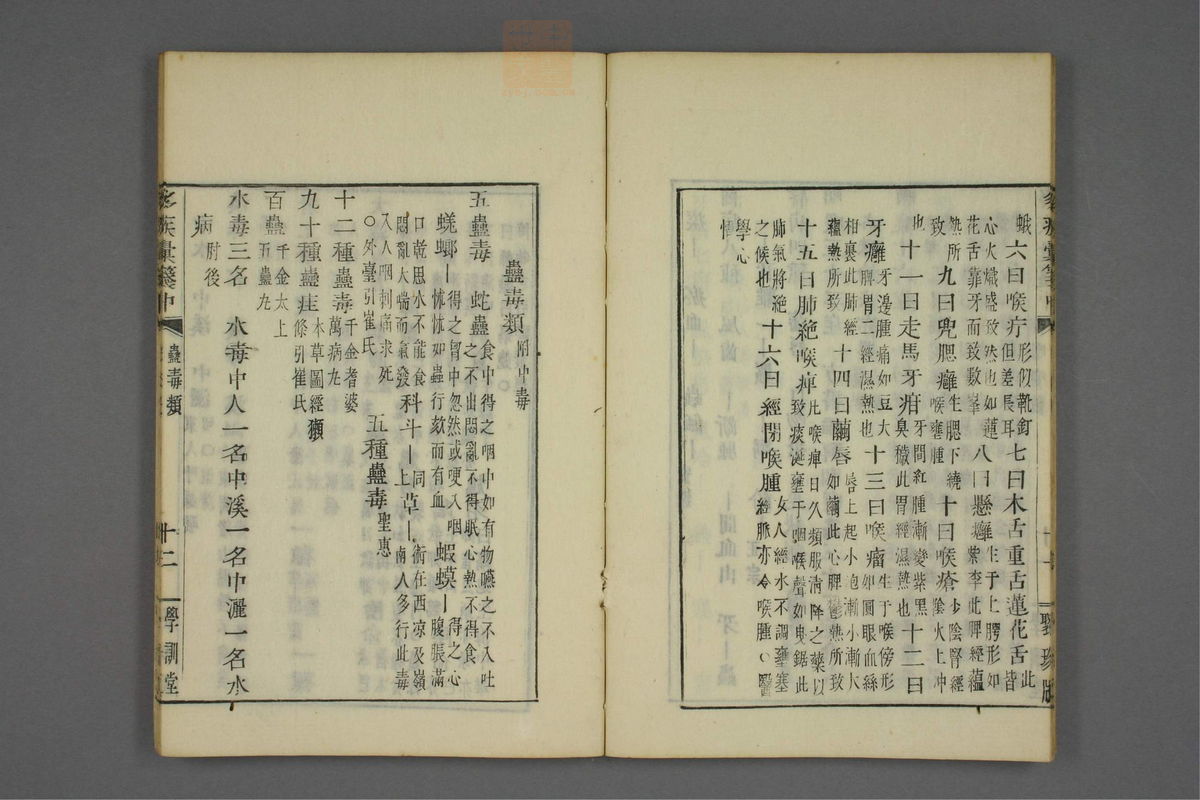 蛾六曰喉疔形似靴釘但差長耳七曰木舌重舌蓮花舌此皆
心火熾盛致然也如蓮花舌靠牙而致數峯八曰懸癰生于上腭形如紫李此脾經蘊
熱所致九曰兜腮癰生腮下繞喉壅腫十曰喉瘡少陰腎經陰火上冲
也十一曰走馬牙疳牙間紅腫漸變紫黑臭穢此胃經濕熱也十二曰
牙癰牙邊腫痛如豆大脾胃二經濕熱也十三曰喉瘤生于喉傍形如圓眼血絲
相裹此肺經蘊熱所致十四曰繭唇唇上起小泡漸小漸大如繭此心脾鬱熱所致
十五曰肺絶喉痺凡喉痺日久頻服清降之藥以致痰涎壅于咽喉聲如曳鋸此
肺氣將絶之候也十六曰經閉喉腫女人經水不調壅塞經脈亦令喉腫○醫
學心悟
蠱毒類附中毒
五蠱毒 蛇蠱食中得之咽中如有物嚥之不入吐之不出悶亂不得眠心熱不得食
蜣螂｜得之胷中忽然或哽入咽怵怵如蟲行欬而有血蝦蟆｜得之心腹脹滿
口乾思水不能食悶亂大喘而氣發科斗｜同上草｜術在西凉及嶺南人多行此毒
入人咽刺痛求死○外臺引崔氏 五種蠱毒聖惠
十二種蠱毒千金耆婆萬病丸
九十種蠱疰本草圖經獺條引崔氏
百蠱千金太上五蠱丸
水毒三名 水毒中人一名中溪一名中灑一名水
病肘後
蠱毒類
十二
學訓堂